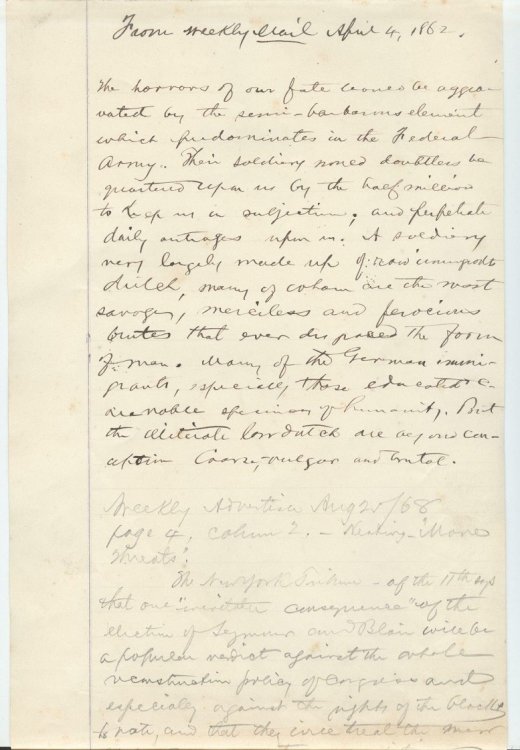 From Weekly Mail April 4, 1862.
The horrors of our fate would be aggra-
vated by the semi-barbarous element
which predominates in the Federal
Army. Their soldiery would doubtless be
quartered upon us by the half million
to keep us in subjection, and perpetrate
daily outrages upon us. A soldiery
very largely made up of raw immigrant
dutch, many of whom are the most
savage, merciless and ferocious
brutes that ever disgraced the form
of man. Many of the German immi-
grants, especially those educated are
specimens of humanity. But
the illiterate low dutch are beyond con-
ception Coarse, vulgar and brutal.
Weekly Advertiser Aug 25/68
page 4, column 2. - Heading - "More
Threats".
The New York Tribune - of the 11th says
that one "inevitable consequence" of the
election of Seymour and Blair will be
a popular verdict against the whole
reconstruction policy of Congress and
especially against the rights of the blacks
to vote, and that they will treat the